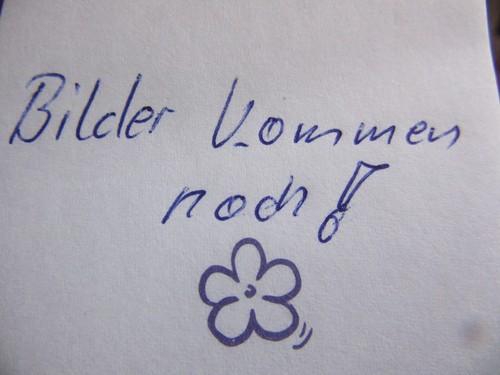 Bilder kommen
noch!